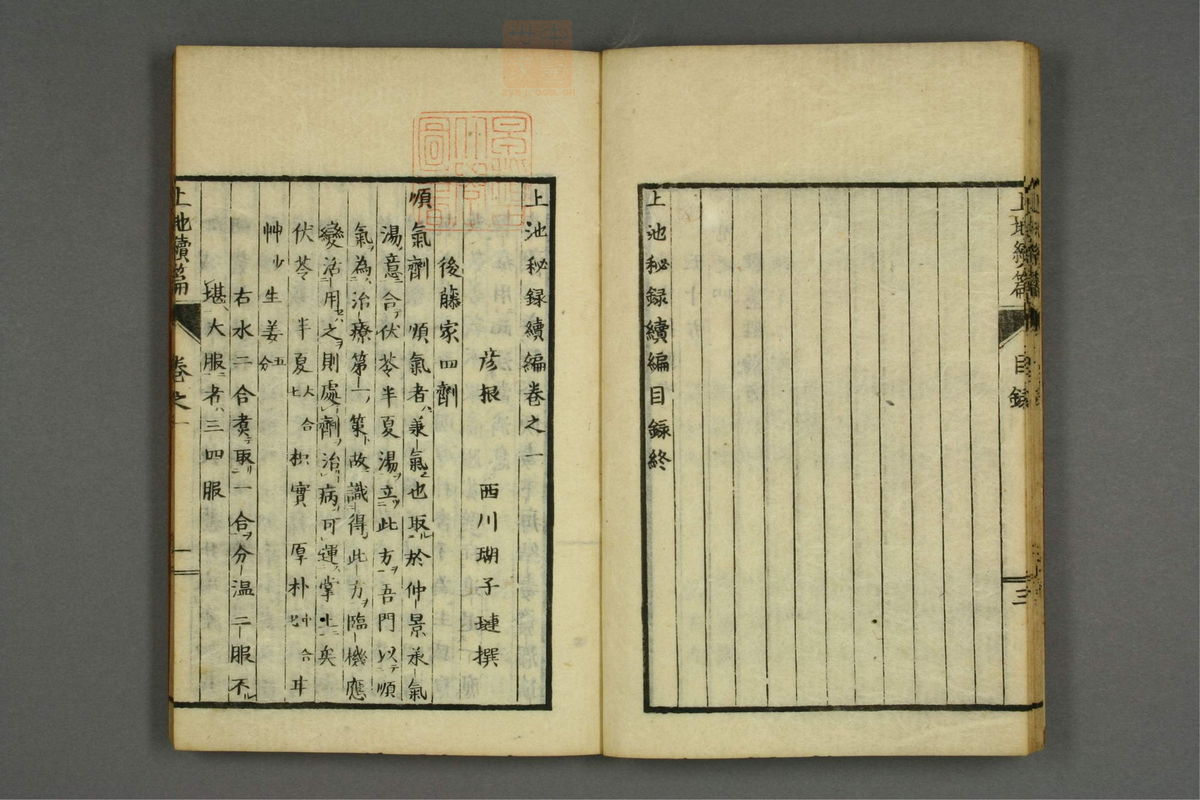 上池秘録續編目録終
上池續篇
目録
三
上池秘録續編卷之一
彦根　西川瑚子璉撰
後藤家四劑
順氣劑　順氣者、兼氣也取於仲景
湯意合伏苓半夏湯立此方吾門以順
氣為治療第一策故識得此方臨機應
變活用之則處劑治病可運掌上矣
伏苓　半夏　枳實　厚朴
艸少　生姜五分
右水二合煮取一合分温二服不
堪大服者三四服
上池續篇
卷之一
一